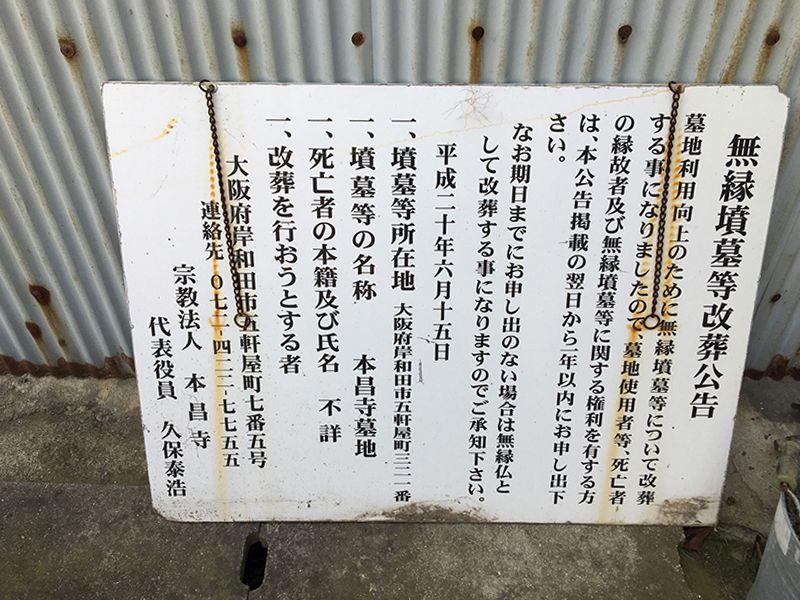 無縁墳墓等改葬公告
墓地利用向上のために無縁墳墓等について改葬
する事になりましたので、墓地使用者等、死亡者
の縁故者及び無縁墳墓等に関する権利を有する方
は、本公告掲載の翌日から一年以内にお申し出下
さい。
なお期日までにお申し出のない場合は無縁仏と
して改葬する事になりますのでご承知下さい。
平成二十年六月十五日
一、墳墓等所在地 大阪府岸和田市五軒屋町三二一番
一、墳墓等の名称 本昌寺墓地
一、死亡者の本籍及び氏名 不詳
一、改葬を行おうとする者
大阪府岸和田市五軒屋町七番五号
連絡先 〇七二-四二二-七七五五
宗教法人 本昌寺
代表役員 久保泰浩